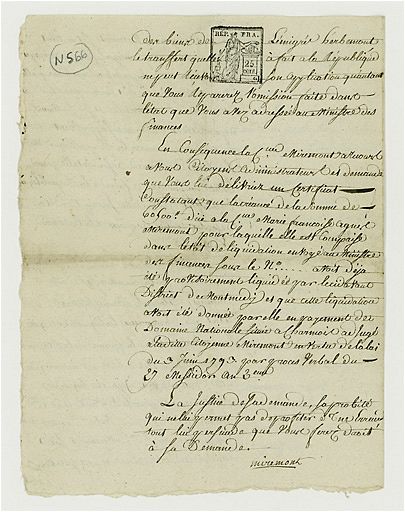 N 566
RÉP. FRA.
25
CENT.
des biens de L'émigré herbemont
le transfert qu'elle a fait a la République
ne peut recevoir son application qu'autant
que vous réparerez l'omission faite dans
l'état que vous avez adressé au Ministre des
finances
En Conséquence la Cne Miremont a recours
a vous Citoyens administrateurs et demande
que vous lui délivriez un Certificat
Constatant que la créance de la somme de
due a la Cne Marie françoise agnès
miremont pour laquelle elle est comprise
dans l'état de liquidation envoyé au Ministre
des finances sous le No.... avoit déjà
été provisoirement liquidée par le cidevant
District de Montmedy et que cette liquidation
avoit été donnée par elle en payement de
Domaine Nationale située a Charmois adjugé
a ladite Citoyenne Miremont en vertu de la loi
du 3 Juin 1793 par procès verbal du
27 Messidor an 3eme
La Justice de sa demande, la probité
qui ne lui permet pas de profiter d'une Erreur
sont lui persuade que vous ferez droit
à sa Demande.
miremont